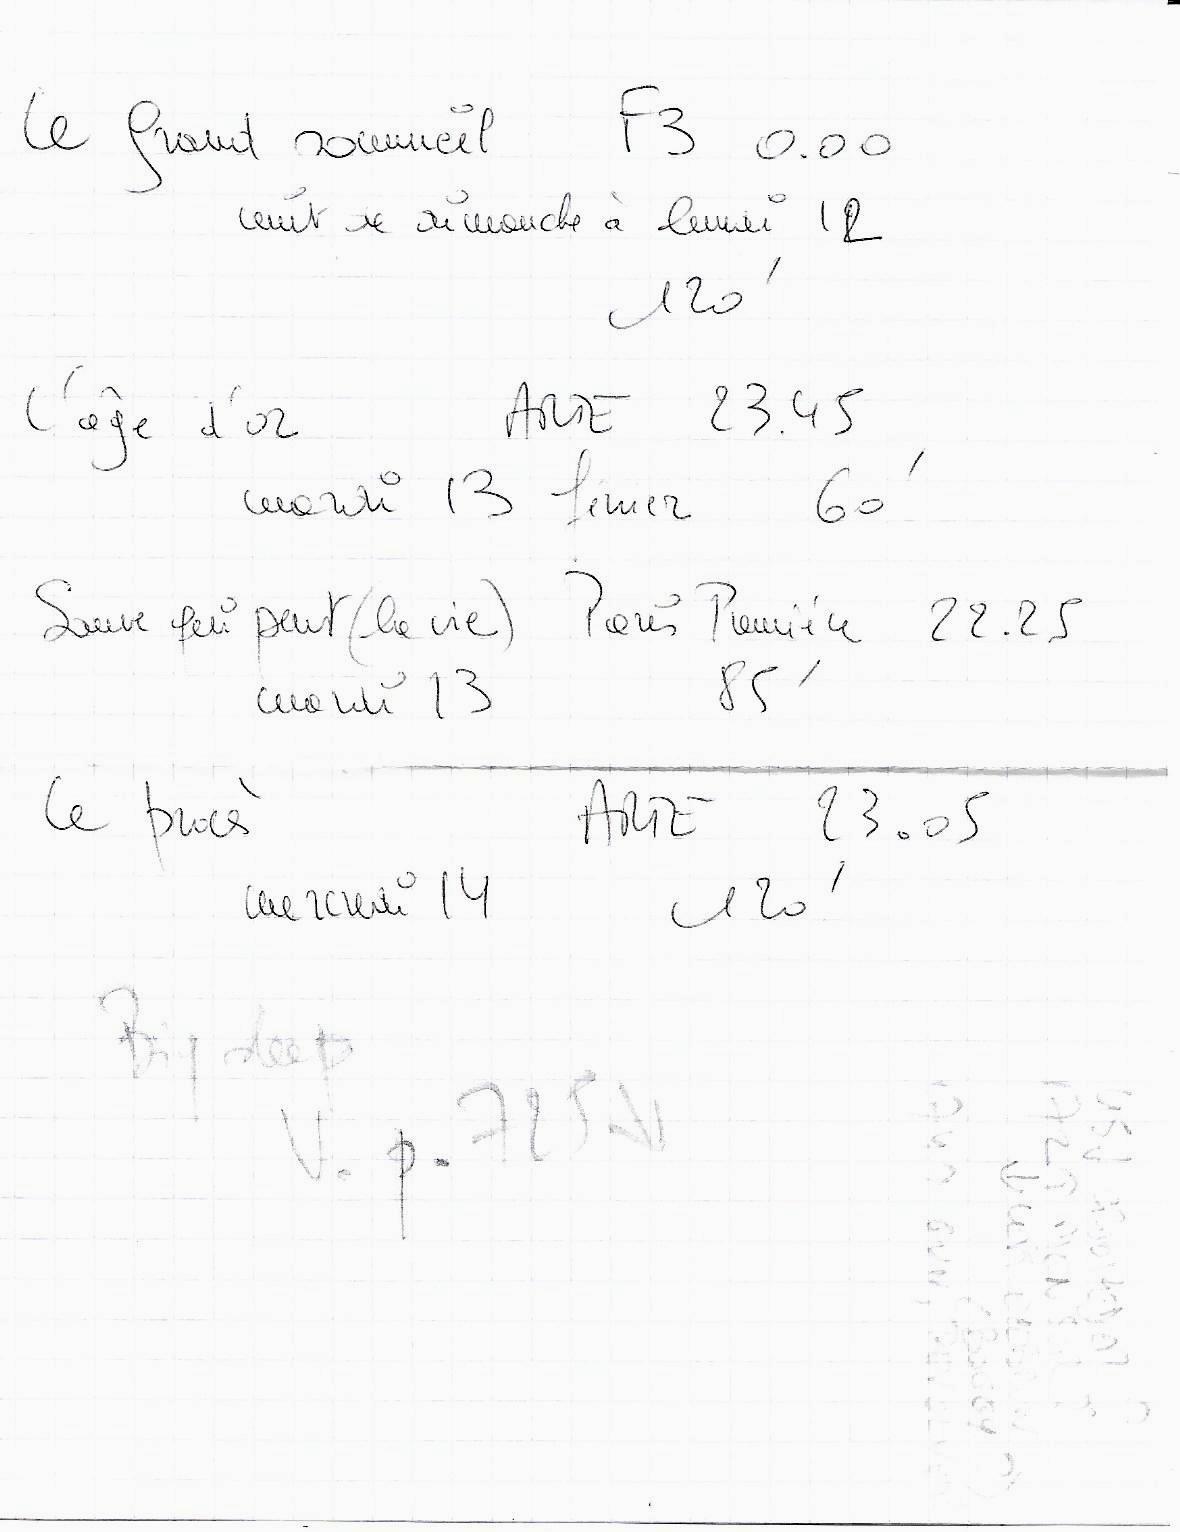 Le grand sommeil F3 0.00
nuit de dimanche à lundi 12
120'
L'âge d'or ARTE 23.45
mardi 13 février 60'
Sauve qui peut (la vie) Paris Première 22.25
mardi 13 85'
Le procès ARTE 23.05
mercredi 14 120'
Big sleep
V. p. 725